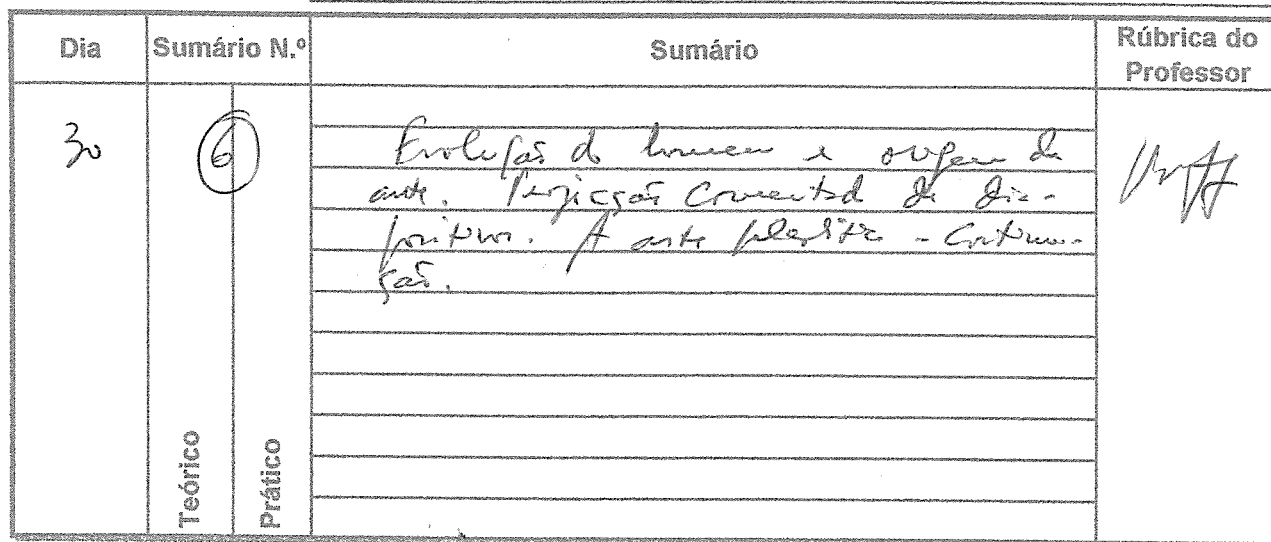 Dia Sumário N.º Sumário Rúbrica do Professor
30 6 Evolução do homem e origem da
arte. Projecção comentada de dia-
positivos. A arte - Continua-
ção.
Teórico Prático